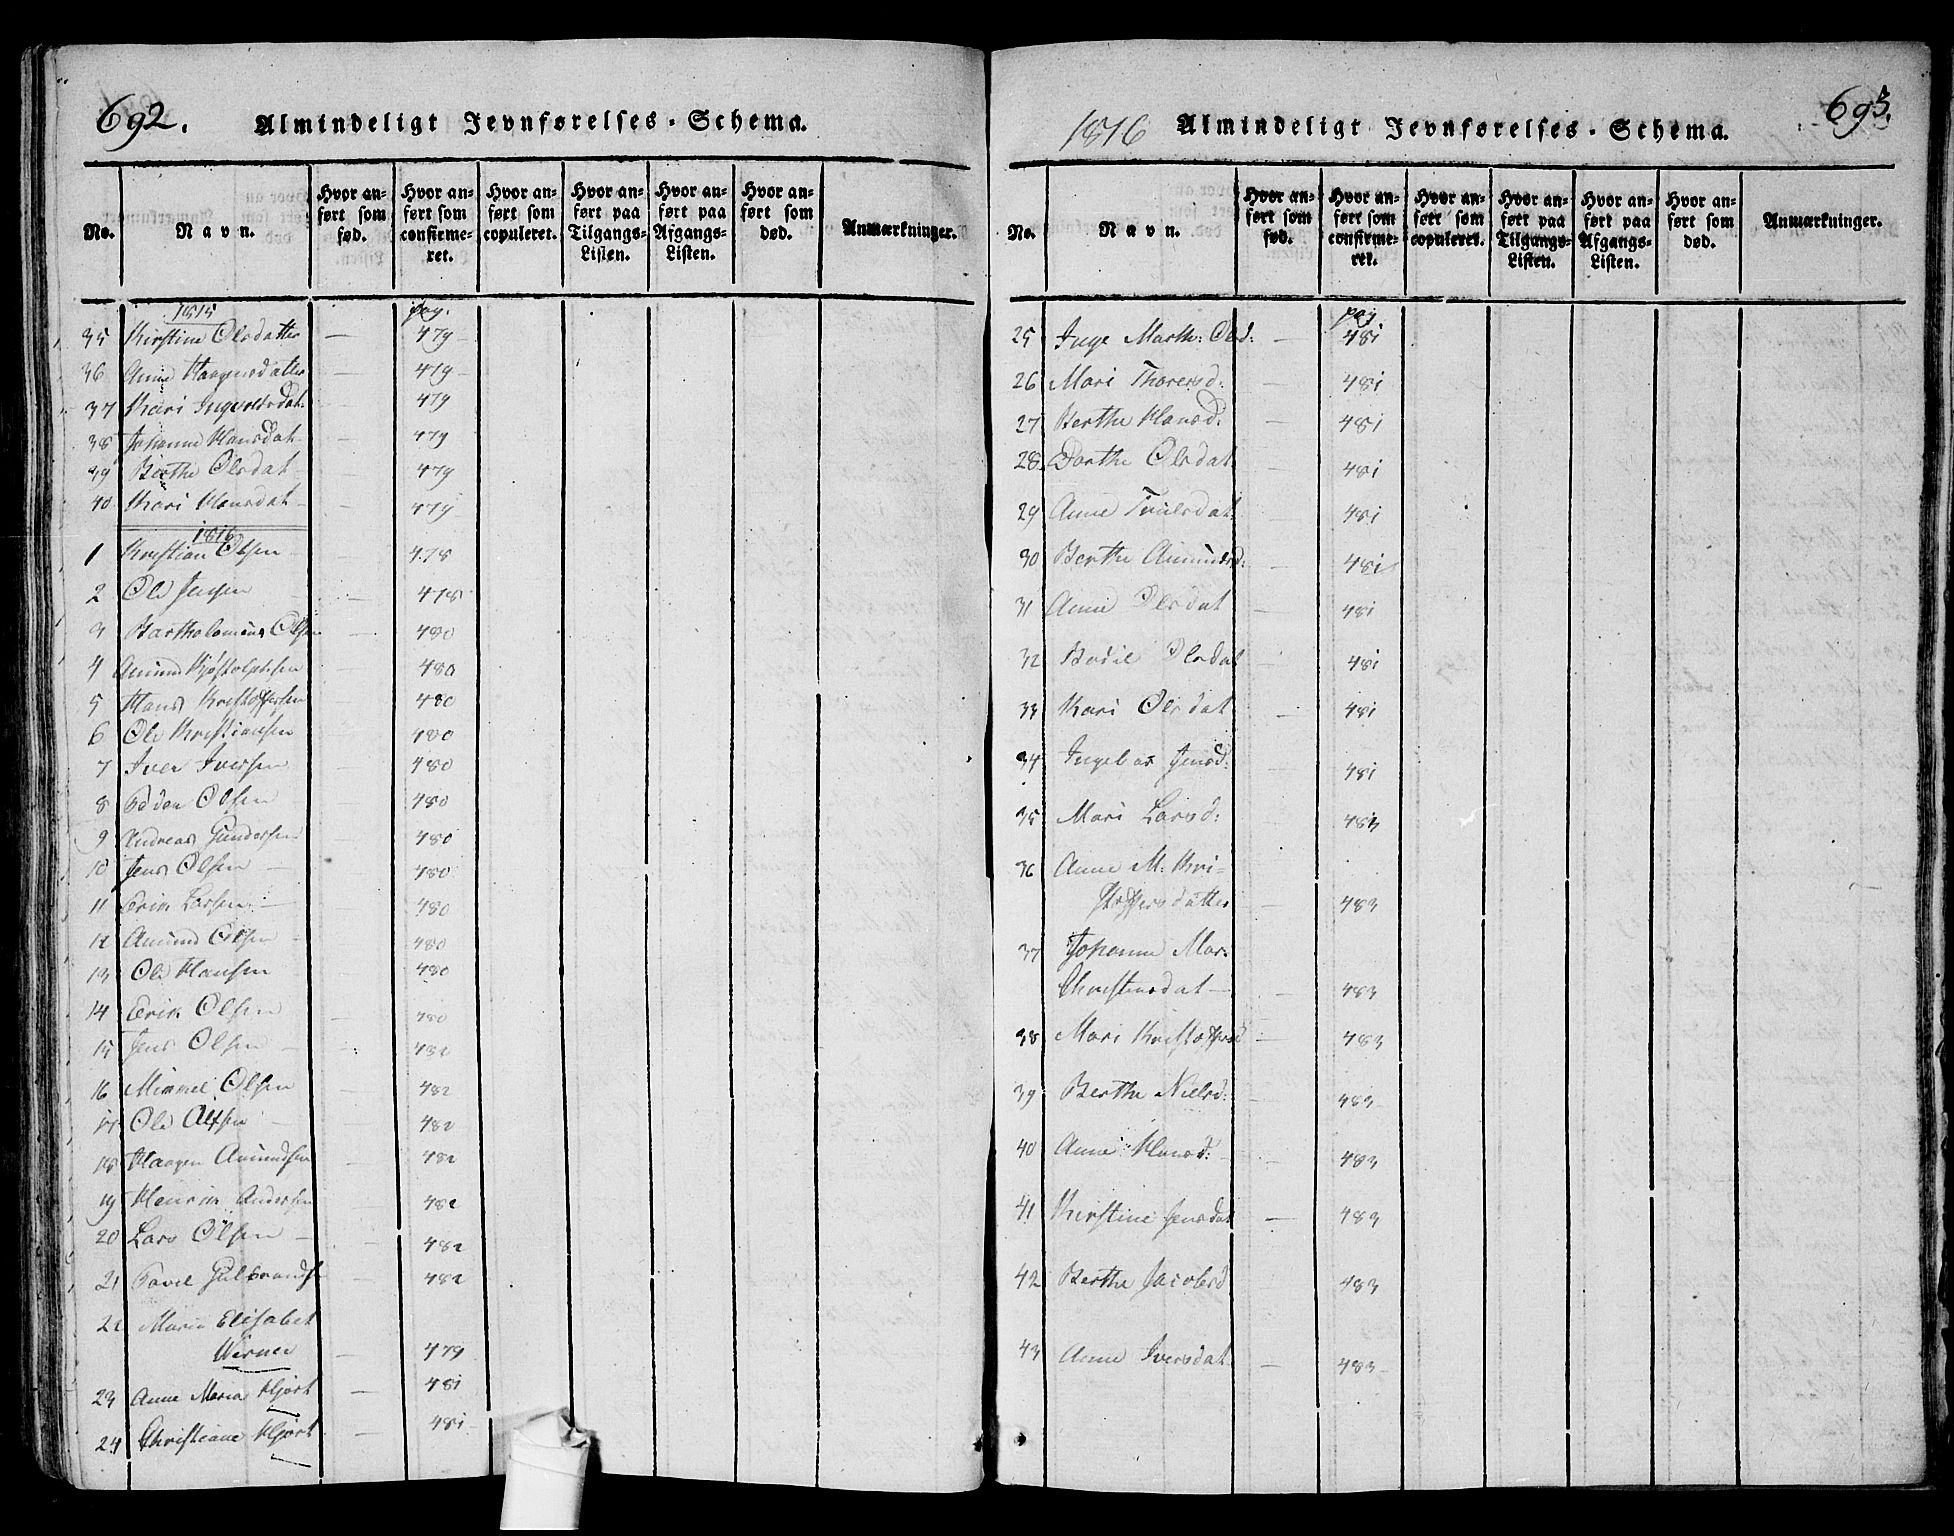 692.
Almindeligt Jevnførelses-Schema.
No.
Navn.
Hvor anført som fød.
Hvor anført som confirmeret.
Hvor anført som copuleret.
Hvor anført paa Tilgangs-Listen.
Hvor anført paa Afgangs-Listen.
Hvor anført som død.
Anmærkninger.
1815 pag.
35 Kirstine Olsdatter — 479
36 Anne Haagensdatter — 479
37 Kari Ingvoldsdat. — 479
38 Johanne Hansdat — 479
39 Berthe Olsdat — 479
40 Kari Hansdat — 479
1816
1 Kristian Olsen — 478
2 Ole Jensen — 478
3 Bartholomæus Olsen — 480
4 Amund Kjøstolphsen — 480
5 Hans Kristoffersen — 480
6 Ole Kristiansen — 480
7 Iver Iversen — 480
8 Peder Olsen — 480
9 Andreas Gundersen — 480
10 Jens Olsen — 480
11 Erik Larsen — 480
12 Amund Olsen — 480
13 Ole Hansen — 480
14 Erik Olsen — 480
15 Jens Olsen — 482
16 Mikkel Olsen — 482
17 Ole Olsen — 482
18 Haagen Amundsen — 482
19 Henrik Andersen — 482
20 Lars Olsen — 482
21 Povel Gulbrands — 482
22 Maria Elisabet
Werner — 479
23 Anne Maria Hjort — 481
24 Christiane Hjort — 481
693.
1816 Almindeligt Jevnførelses-Schema.
No.
Navn.
Hvor anført som fød.
Hvor anført som confirmeret.
Hvor anført som copuleret.
Hvor anført paa Tilgangs-Listen.
Hvor anført paa Afgangs-Listen.
Hvor anført som død.
Anmærkninger.
pag
25 Inge Marth: Olsd: — 481
26 Mari Thorersd: — 481
27 Berthe Hansd: — 481
28 Dorthe Olsdat. — 481
29 Anne Truelsdat. — 481
30 Berthe Amundsd: — 481
31 Anne Olsdat — 481
32 Bodil Olsdat — 481
33 Kari Olsdat — 481
34 Ingebor Jensd: — 481
35 Mari Larsd: — 483
36 Anne M: Kri-
stoffersdatter — 483
37 Johanne Mar.
Christensdat — 483
38 Mari Kristoffersd — 483
39 Berthe Nielsd: — 483
40 Anne Hansd: — 483
41 Kirstine Jensdat — 483
42 Berthe Jacobsd — 483
43 Anne Iversdat — 483